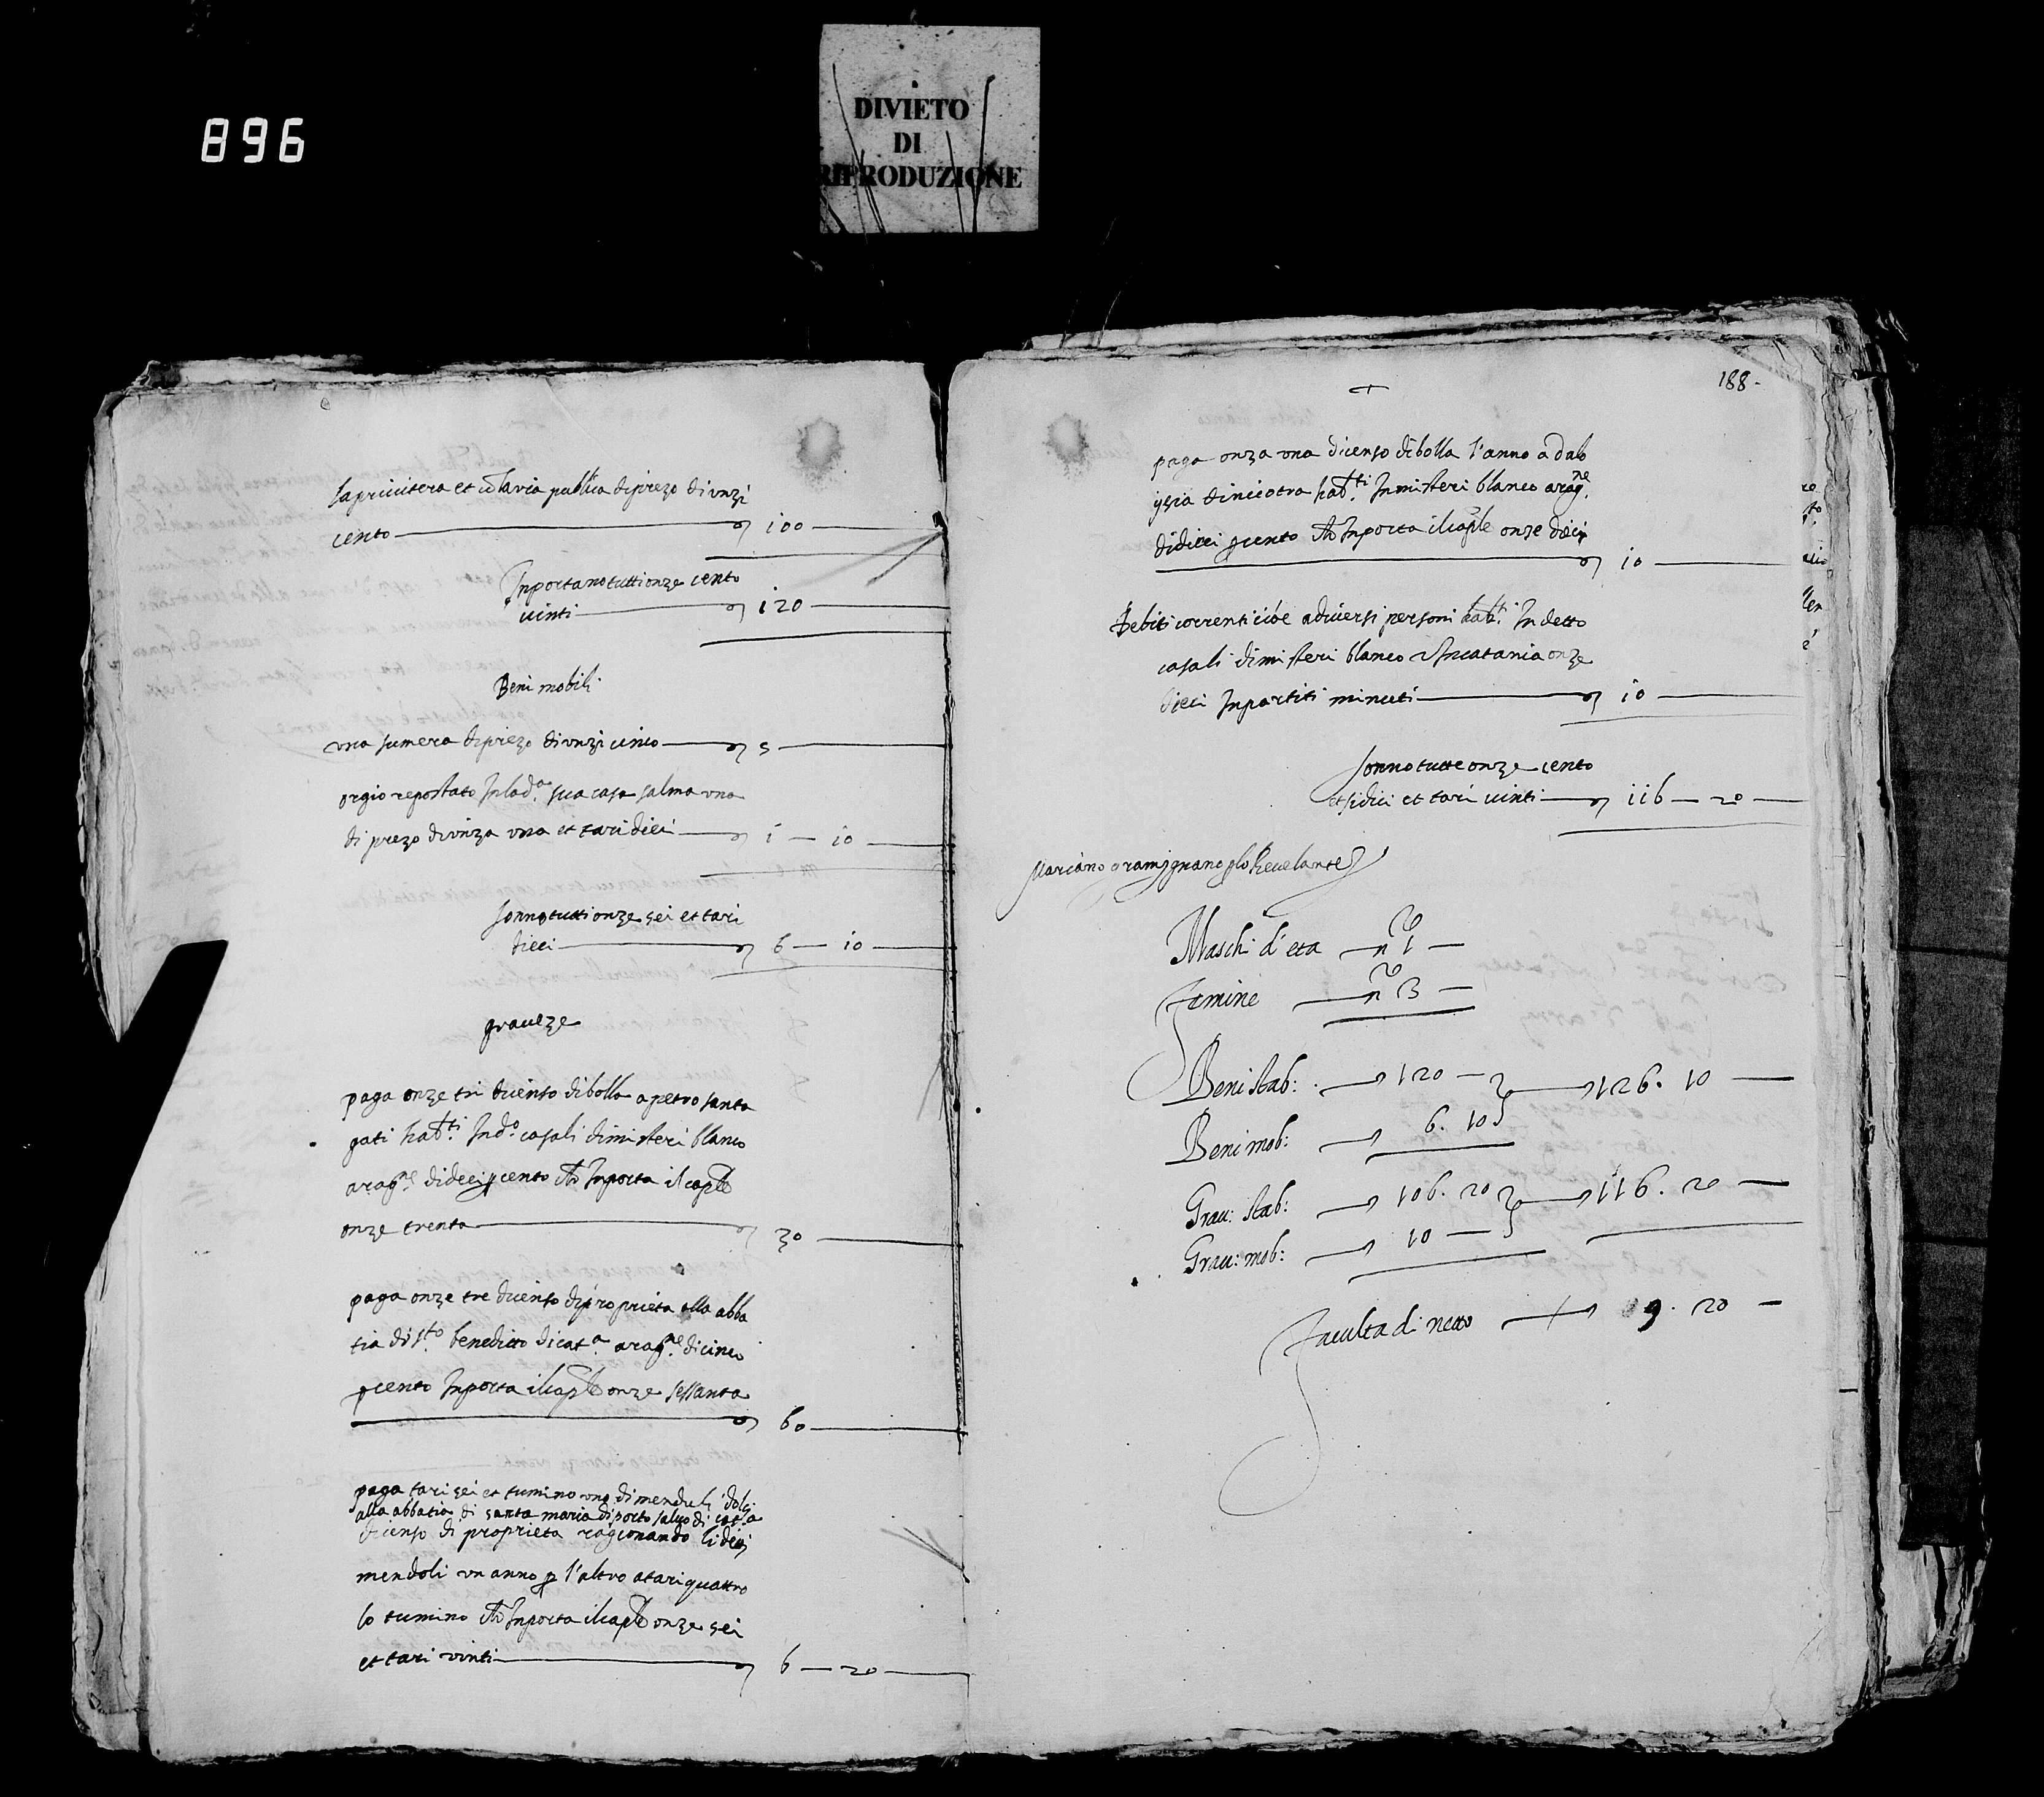 896
DIVIETO
DI
RIPRODUZIONE
la privitera et co la via publica di prezo di unzi
cento 100
Inportano tutti onze cento
vinti 120
Beni mobili
una sumera di prezo di unzi cinco 5
orgio repostato In la d.a sua casa salma una
di prezo di unza una et tari dieci 1 10
sonno tutti onze sei et tari
dieci 6 10
graveze
paga onze tri di censo di bolla a petro santa
gati hab.ti In d.o casali di misteri blanco
a rag.ne di deci p cento Inporta il cap.le
onze trenta 30
paga onze tre di censo di proprieta alla abba
tia di s.to benedicto di cat.a a rag.ne di cinco
p cento Inporta il cap.le onze sessanta
60
paga tari sei et tumino uno di menduli dolci
alla abbatia di santa maria di porto salvo di cat.a
di censo di proprieta ragionando li
mendoli un anno p l'altro a tari quattro
lo tumino Inporta il cap.le onze sei
et tari vinti 6 20
188
paga onza una di censo di bolla l'anno a
hab.ti In misteri blanco a rag.ne
di dieci p cento Inporta il cap.le onze dieci
10
Debiti correnti cioe a diversi personi hab.ti In detto
casali di misteri blanco In catania onze
dieci In partiti minuti 10
sonno tutte onze cento
et sidici et tari vinti 116 20
Mariano gramignano revelante
Maschi d'eta n.ro 1
Femine n.ro 3
Beni stab: 120 126. 10
Beni mob: 6. 10
Grav: stab: 106. 20 116. 20
Grav: mob: 10
Faculta di netto 9. 20